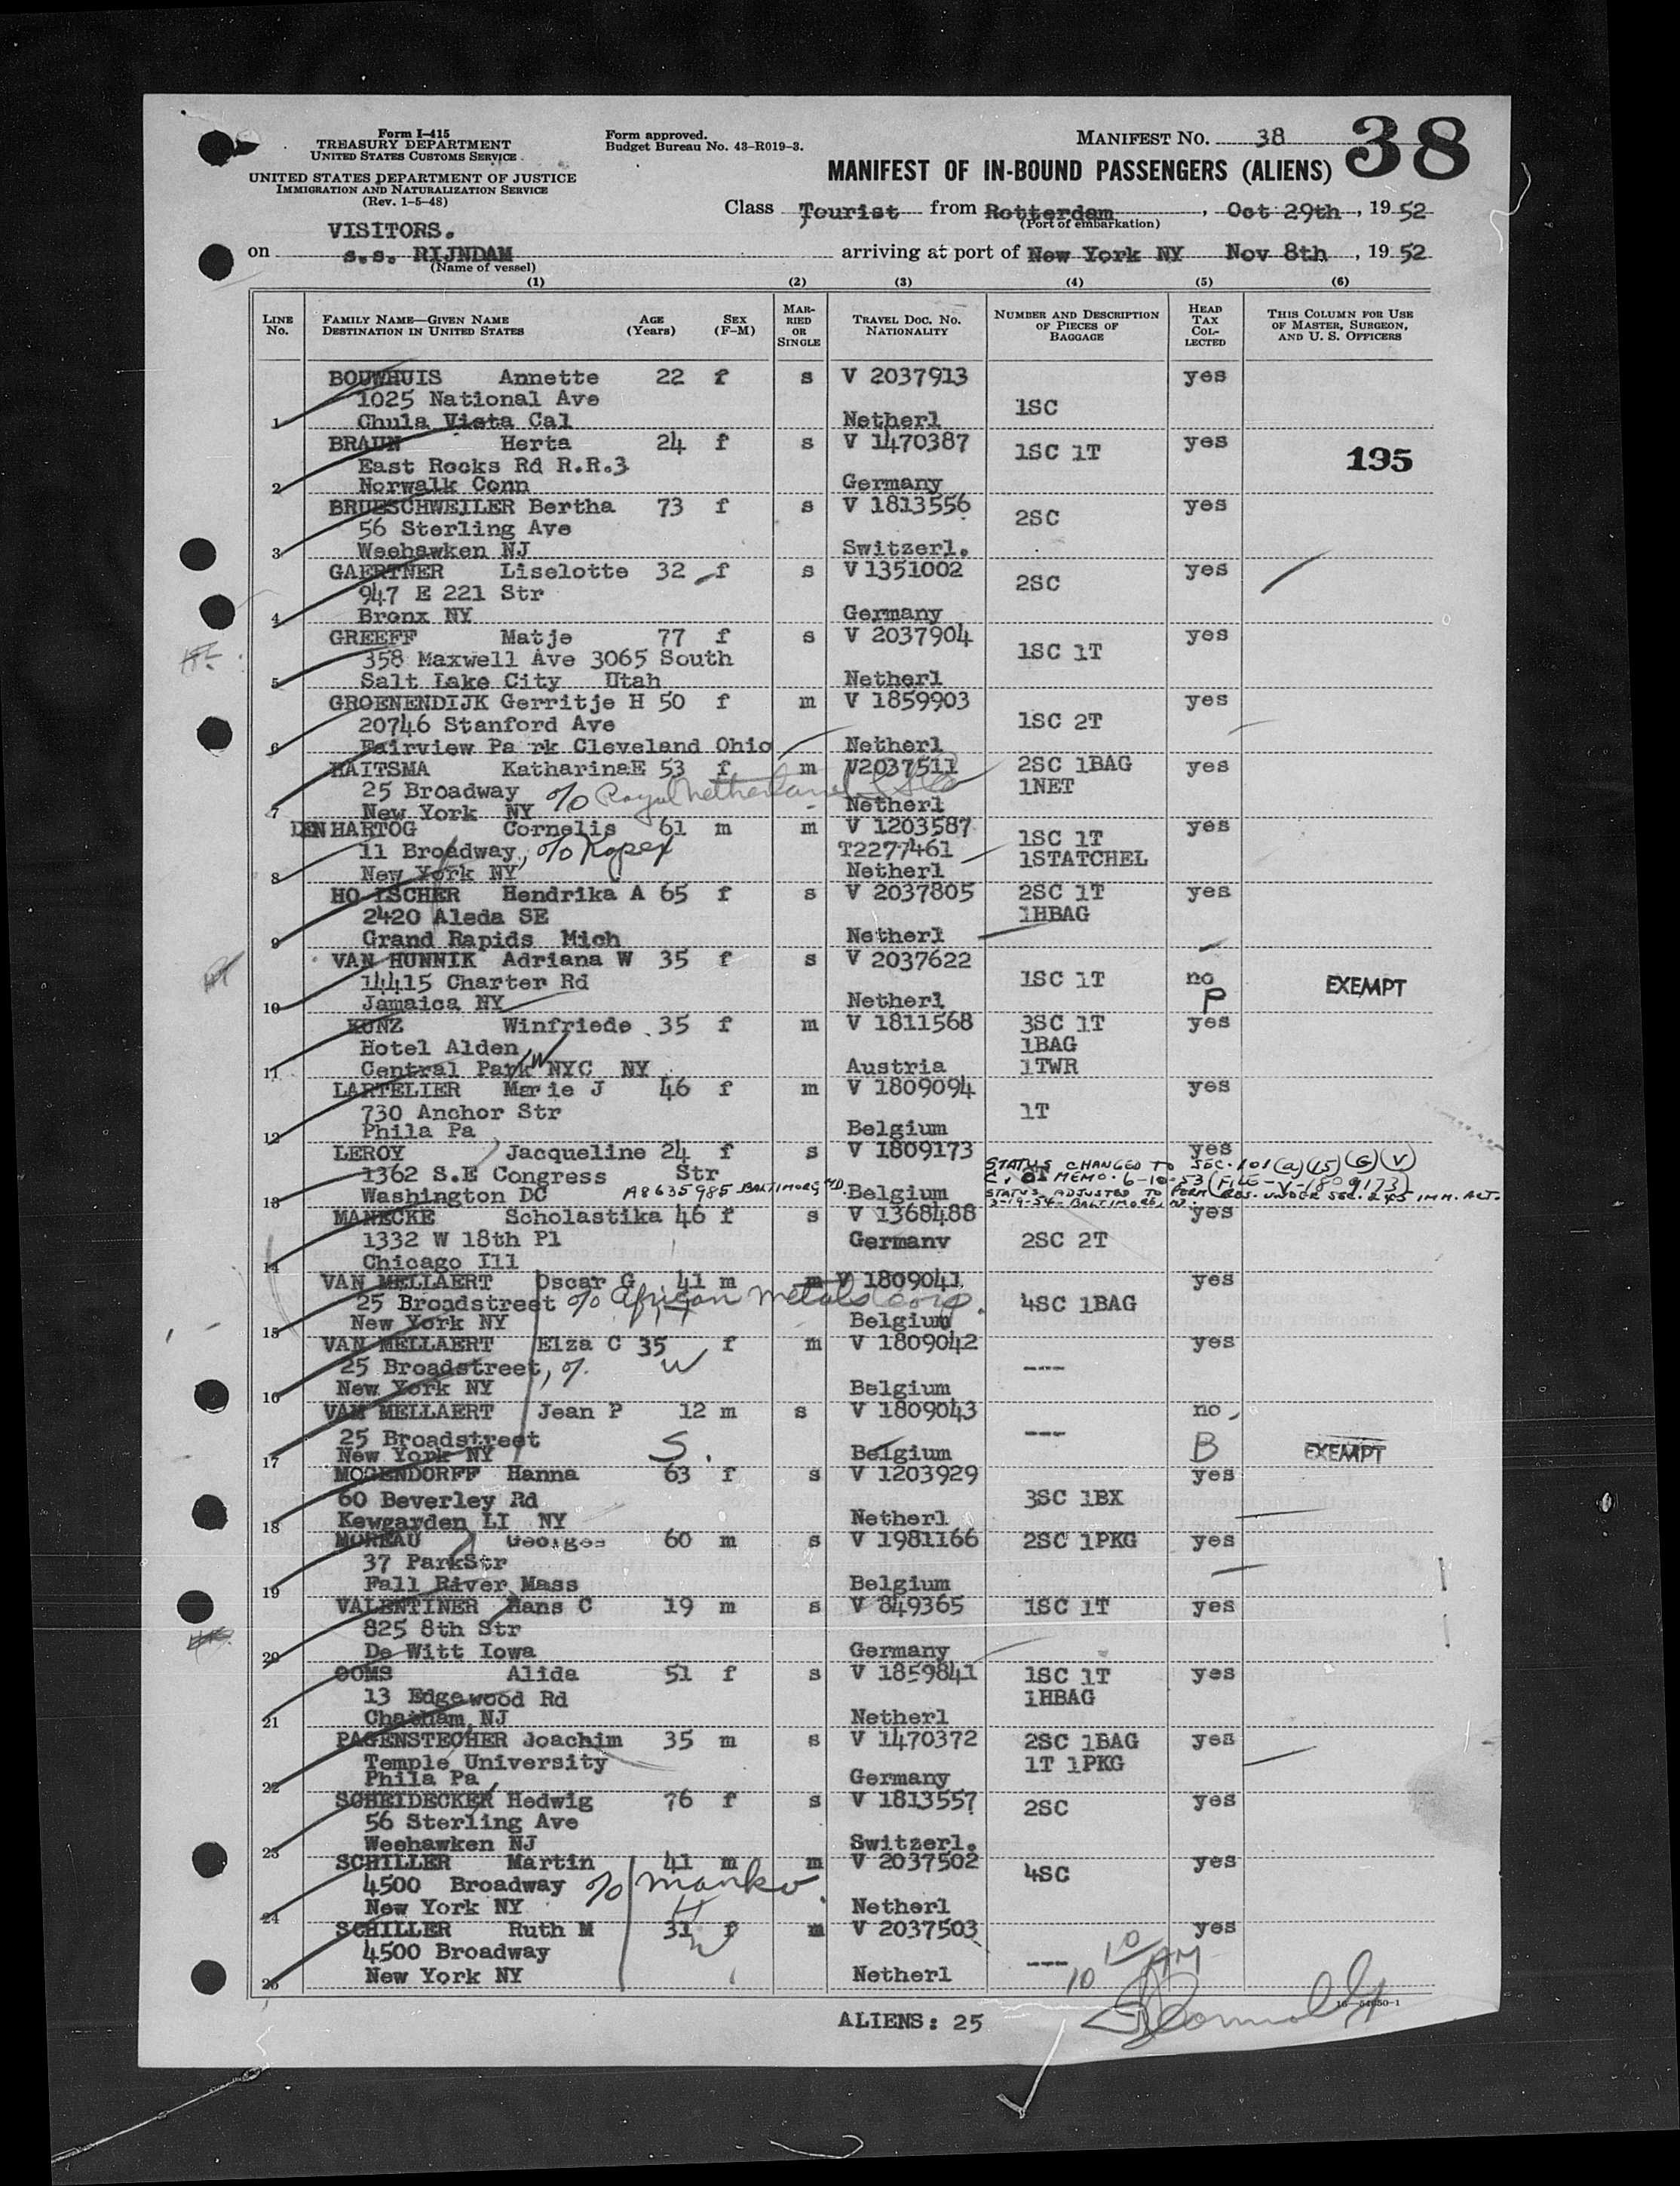 Form I-415
TREASURY DEPARTMENT
UNITED STATES CUSTOMS SERVICE
UNITED STATES DEPARTMENT OF JUSTICE
IMMIGRATION AND NATURALIZATION SERVICE
(Rev. 1-5-48)
Form approved.
Budget Bureau No. 43-R019-3.
MANIFEST NO. 38
38
MANIFEST OF IN-BOUND PASSENGERS (ALIENS)
Class Tourist from Rotterdam, Oct 29th, 1952
(Port of embarkation)
VISITORS.
on s.s. RIJNDAM arriving at port of New York NY Nov 8th, 1952
(Name of vessel)
(1) (2) (3) (4) (5) (6)
LINE No. FAMILY NAME—GIVEN NAME DESTINATION IN UNITED STATES AGE (Years) SEX (F-M) MARRIED OR SINGLE TRAVEL DOC. NO. NATIONALITY NUMBER AND DESCRIPTION OF PIECES OF BAGGAGE HEAD TAX COLLECTED THIS COLUMN FOR USE OF MASTER, SURGEON, AND U. S. OFFICERS
BOUWHUIS Annette 22 f s V 2037913 yes
1025 National Ave 1SC
1 Chula Vista Cal Netherl
BRAUN Herta 24 f s V 1470387 1SC 1T yes
East Rocks Rd R.R.3 195
2 Norwalk Conn Germany
BRUESCHWEILER Bertha 73 f s V 1813556 yes
56 Sterling Ave 2SC
3 Weehawken NJ Switzerl.
GAERTNER Liselotte 32 f s V 1351002 yes
947 E 221 Str 2SC
4 Bronx NY Germany
GREEFF Matje 77 f s V 2037904 yes
358 Maxwell Ave 3065 South 1SC 1T
5 Salt Lake City Utah Netherl
GROENENDIJK Gerritje H 50 f m V 1859903 yes
20746 Stanford Ave 1SC 2T
6 Fairview Pa rk Cleveland Ohio Netherl
HAITSMA KatharinaE 53 f m V2037511 2SC 1BAG yes
25 Broadway c/o Royal Netherland 1NET
7 New York NY Netherl
DEN HARTOG Cornelis 61 m m V 1203587 yes
11 Broadway, c/o Kopex T2277461 1SC 1T
8 New York NY Netherl 1STATCHEL
HO LSCHER Hendrika A 65 f s V 2037805 2SC 1T yes
2420 Aleda SE 1HBAG
9 Grand Rapids Mich Netherl
VAN HUNNIK Adriana W 35 f s V 2037622
14415 Charter Rd 1SC 1T no EXEMPT
10 Jamaica NY Netherl P
KUNZ Winfriede 35 f m V 1811568 3SC 1T yes
Hotel Alden 1BAG
11 Central Park W NYC NY Austria 1TWR
LARTELIER Marie J 46 f m V 1809094 yes
730 Anchor Str 1T
12 Phila Pa Belgium
LEROY Jacqueline 24 f s V 1809173 yes
1362 S.E Congress Str STATUS CHANGED TO SEC. 101(a)(15)(G)(V)
C. O. MEMO. 6-10-53 (FILE-V-1809173)
13 Washington DC A8635985 BALTIMORE, MD. Belgium STATUS ADJUSTED TO PERM. RES. UNDER SEC. 245 IMM. ACT.
3-19-54 - BALTIMORE, MD.
MANECKE Scholastika 46 f s V 1368488 yes
1332 W 18th Pl Germany 2SC 2T
14 Chicago Ill
VAN MELLAERT Oscar G 41 m m V 1809041 yes
25 Broadstreet c/o African Metals Corp. 4SC 1BAG
15 New York NY Belgium
VAN MELLAERT Elza C 35 f m V 1809042 yes
25 Broadstreet, c/o W ---
16 New York NY Belgium
VAN MELLAERT Jean P 12 m s V 1809043 no
25 Broadstreet S. --- B EXEMPT
17 New York NY Belgium
MOGENDORFF Hanna 63 f s V 1203929 yes
60 Beverley Rd 3SC 1BX
18 Kewgarden LI NY Netherl
MOREAU Georges 60 m s V 1981166 2SC 1PKG yes
37 ParkStr
19 Fall River Mass Belgium
VALENTINER Hans C 19 m s V 849365 1SC 1T yes
825 8th Str
20 De Witt Iowa Germany
OOMS Alida 51 f s V 1859841 1SC 1T yes
13 Edgewood Rd 1HBAG
21 Chatham NJ Netherl
PAGENSTECHER Joachim 35 m s V 1470372 2SC 1BAG yes
Temple University 1T 1PKG
22 Phila Pa Germany
SCHEIDECKER Hedwig 76 f s V 1813557 yes
56 Sterling Ave 2SC
23 Weehawken NJ Switzerl.
SCHILLER Martin 41 m m V 2037502 yes
4500 Broadway c/o Manko 4SC
24 New York NY H Netherl
SCHILLER Ruth M 31 f m V 2037503 yes
4500 Broadway W ---
25 New York NY Netherl
10 10 AM
16—54650-1
ALIENS: 25